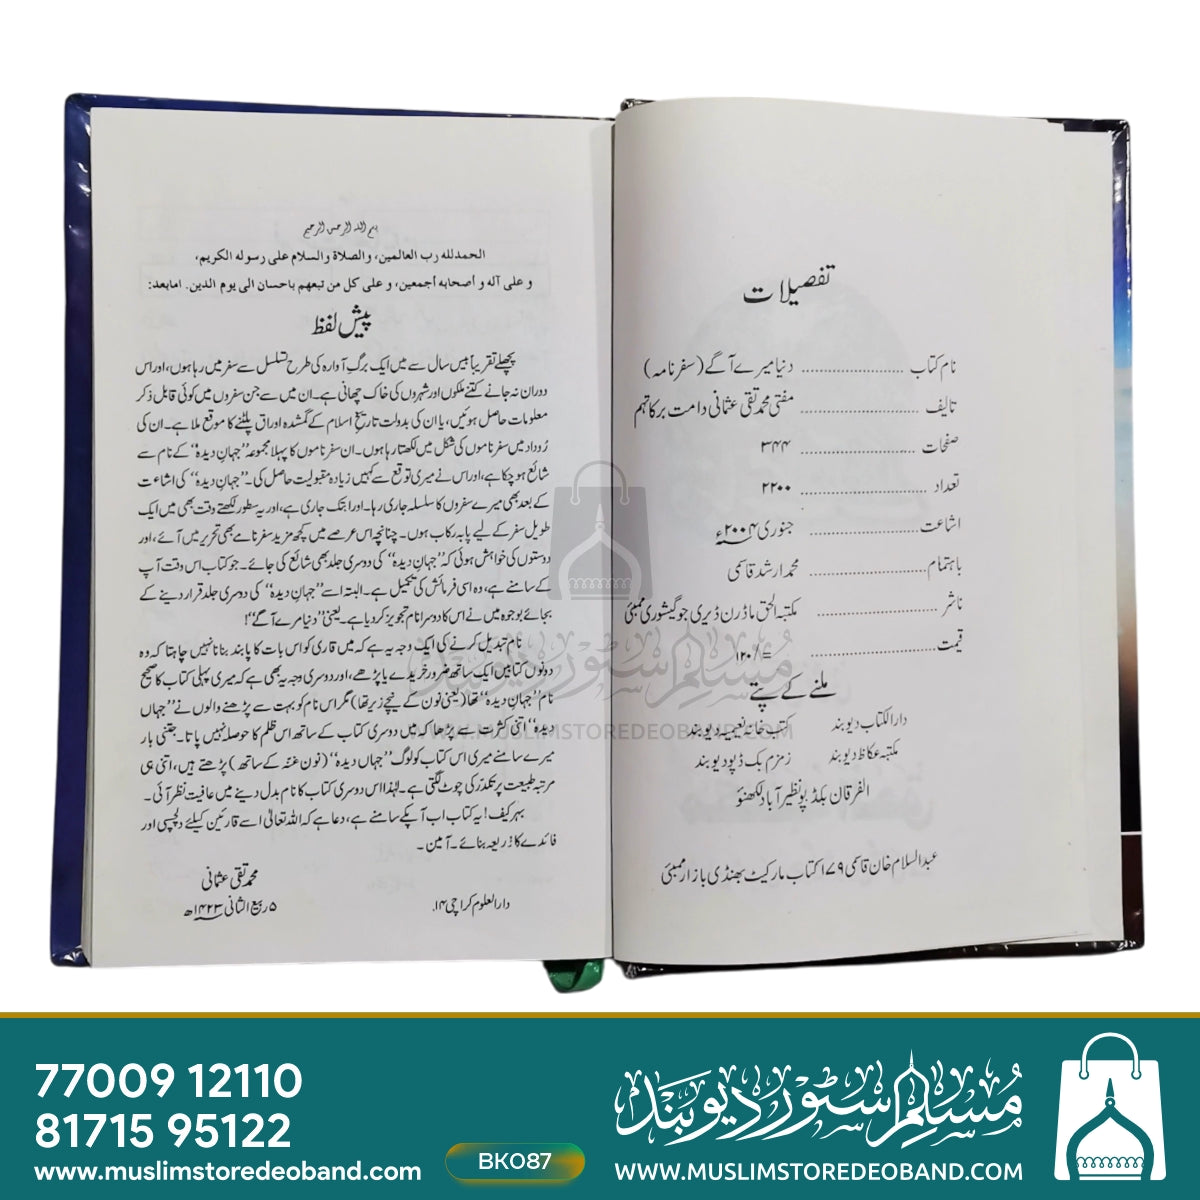 تفصیلات
نام کتاب ........................ دنیا میرے آگے (سفرنامہ)
تالیف ............................ مفتی محمد تقی عثمانی دامت برکاتہم
صفحات ........................... ۳۴۴
تعداد .............................. ۲۲۰۰
اشاعت ............................ جنوری ۲۰۰۴ء
باہتمام ............................ محمد ارشد قاسمی
ناشر ............................ مکتبہ الحق ماڈرن ڈیری جوگیشوری ممبئی
قیمت ............................. ۱۲۰/=
ملنے کے پتے
دارالکتاب دیوبند کتب خانہ نعیمیہ دیوبند
مکتبہ عکاظ دیوبند زمزم بک ڈپو دیوبند
الفرقان بکڈپو نظیر آباد لکھنؤ
عبدالسلام خان قاسمی ۱۷۹ کتاب مارکیٹ بھنڈی بازار ممبئی
بسم الله الرحمن الرحيم
الحمدلله رب العالمين، والصلاة والسلام على رسوله الكريم،
و على آله و أصحابه أجمعين، و على كل من تبعهم باحسان الى يوم الدين. امابعد:
پیش لفظ
پچھلے تقریباً بیس سال سے میں ایک برگِ آوارہ کی طرح تسلسل سے سفر میں رہا ہوں، اور اس
دوران نہ جانے کتنے ملکوں اور شہروں کی خاک چھانی ہے۔ ان میں سے جن سفروں میں کوئی قابل ذکر
معلومات حاصل ہوئیں، یا ان کی بدولت تاریخ اسلام کے گمشدہ اوراق پلٹنے کا موقع ملا ہے۔ ان کی
رُوداد میں سفرناموں کی شکل میں لکھتا رہا ہوں۔ ان سفرناموں کا پہلا مجموعہ "جہانِ دیدہ" کے نام سے
شائع ہو چکا ہے، اور اس نے میری توقع سے کہیں زیادہ مقبولیت حاصل کی۔ "جہانِ دیدہ" کی اشاعت
کے بعد بھی میرے سفروں کا سلسلہ جاری رہا۔ اور ابتک جاری ہے، اور یہ سطور لکھتے وقت بھی میں ایک
طویل سفر کے لیے پابہ رکاب ہوں۔ چنانچہ اس عرصے میں کچھ مزید سفرنامے بھی تحریر میں آئے، اور
دوستوں کی خواہش ہوئی کہ "جہانِ دیدہ" کی دوسری جلد بھی شائع کی جائے۔ جو کتاب اس وقت آپ
کے سامنے ہے، وہ اسی فرمائش کی تکمیل ہے۔ البتہ اسے "جہانِ دیدہ" کی دوسری جلد قرار دینے کے
بجائے بوجوہ میں نے اس کا دوسرا نام تجویز کر دیا ہے۔ یعنی "دنیا مرے آگے"!
نام تبدیل کرنے کی ایک وجہ یہ ہے کہ میں قاری کو اس بات کا پابند بنانا نہیں چاہتا کہ وہ
دونوں کتابیں ایک ساتھ ضرور خریدے یا پڑھے، اور دوسری وجہ یہ بھی ہے کہ میری پہلی کتاب کا صحیح
نام "جہانِ دیدہ" تھا (یعنی نون کے نیچے زیر تھا) مگر اس نام کو بہت سے پڑھنے والوں نے "جہاں
دیدہ" اتنی کثرت سے پڑھا کہ میں دوسری کتاب کے ساتھ اس ظلم کا حوصلہ نہیں پاتا۔ جتنی بار
میرے سامنے میری اس کتاب کو لوگ "جہاں دیدہ" (نون غنّہ کے ساتھ) پڑھتے ہیں، اتنی ہی
مرتبہ طبیعت پر تکدّر کی چوٹ لگتی ہے۔ لہٰذا اس دوسری کتاب کا نام بدل دینے میں عافیت نظر آئی۔
بہر کیف! یہ کتاب اب آپکے سامنے ہے، دعا ہے کہ اللہ تعالیٰ اسے قارئین کیلئے دلچسپی اور
فائدے کا ذریعہ بنائے۔ آمین۔
محمد تقی عثمانی
دارالعلوم کراچی ۱۴۔ ۵ ربیع الثانی ۱۴۲۳ھ
مسلم سٹور دیوبند
WWW.MUSLIMSTOREDEOBAND.COM
77009 12110
81715 95122
www.muslimstoredeoband.com
BK087
مسلم سٹور دیوبند
WWW.MUSLIMSTOREDEOBAND.COM